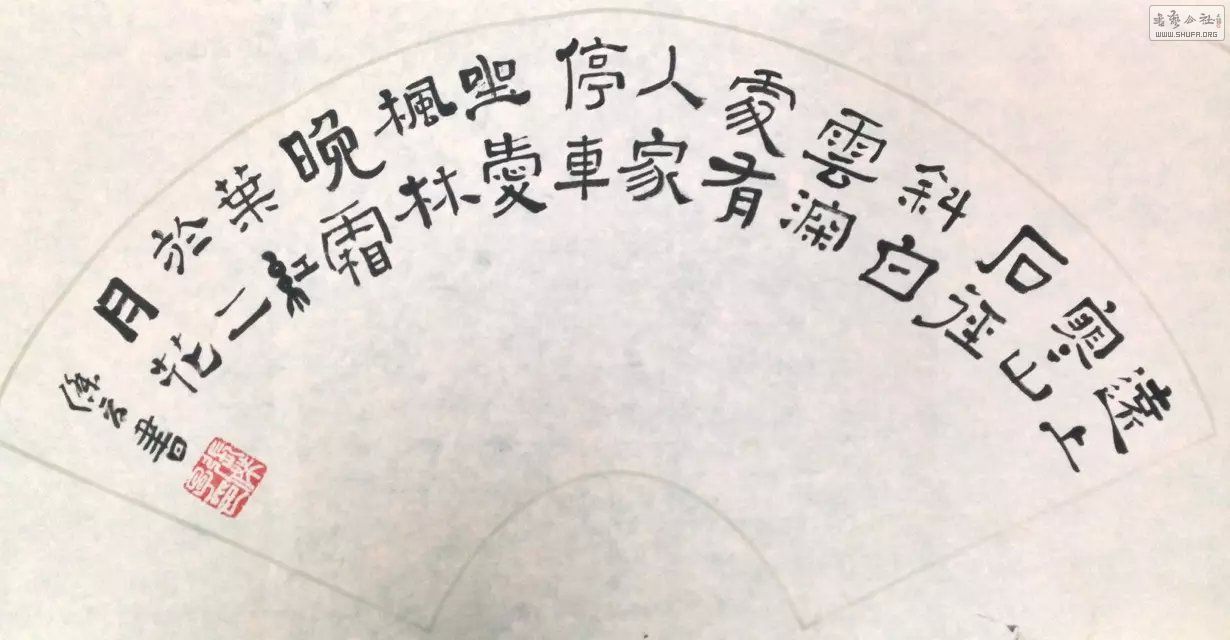 遠上
寒山
石徑
斜白
雲深
處有
人家
停車
坐愛
楓林
晚霜
葉紅
於二
月花
書
書藝公社
WWW.SHUFA.ORG